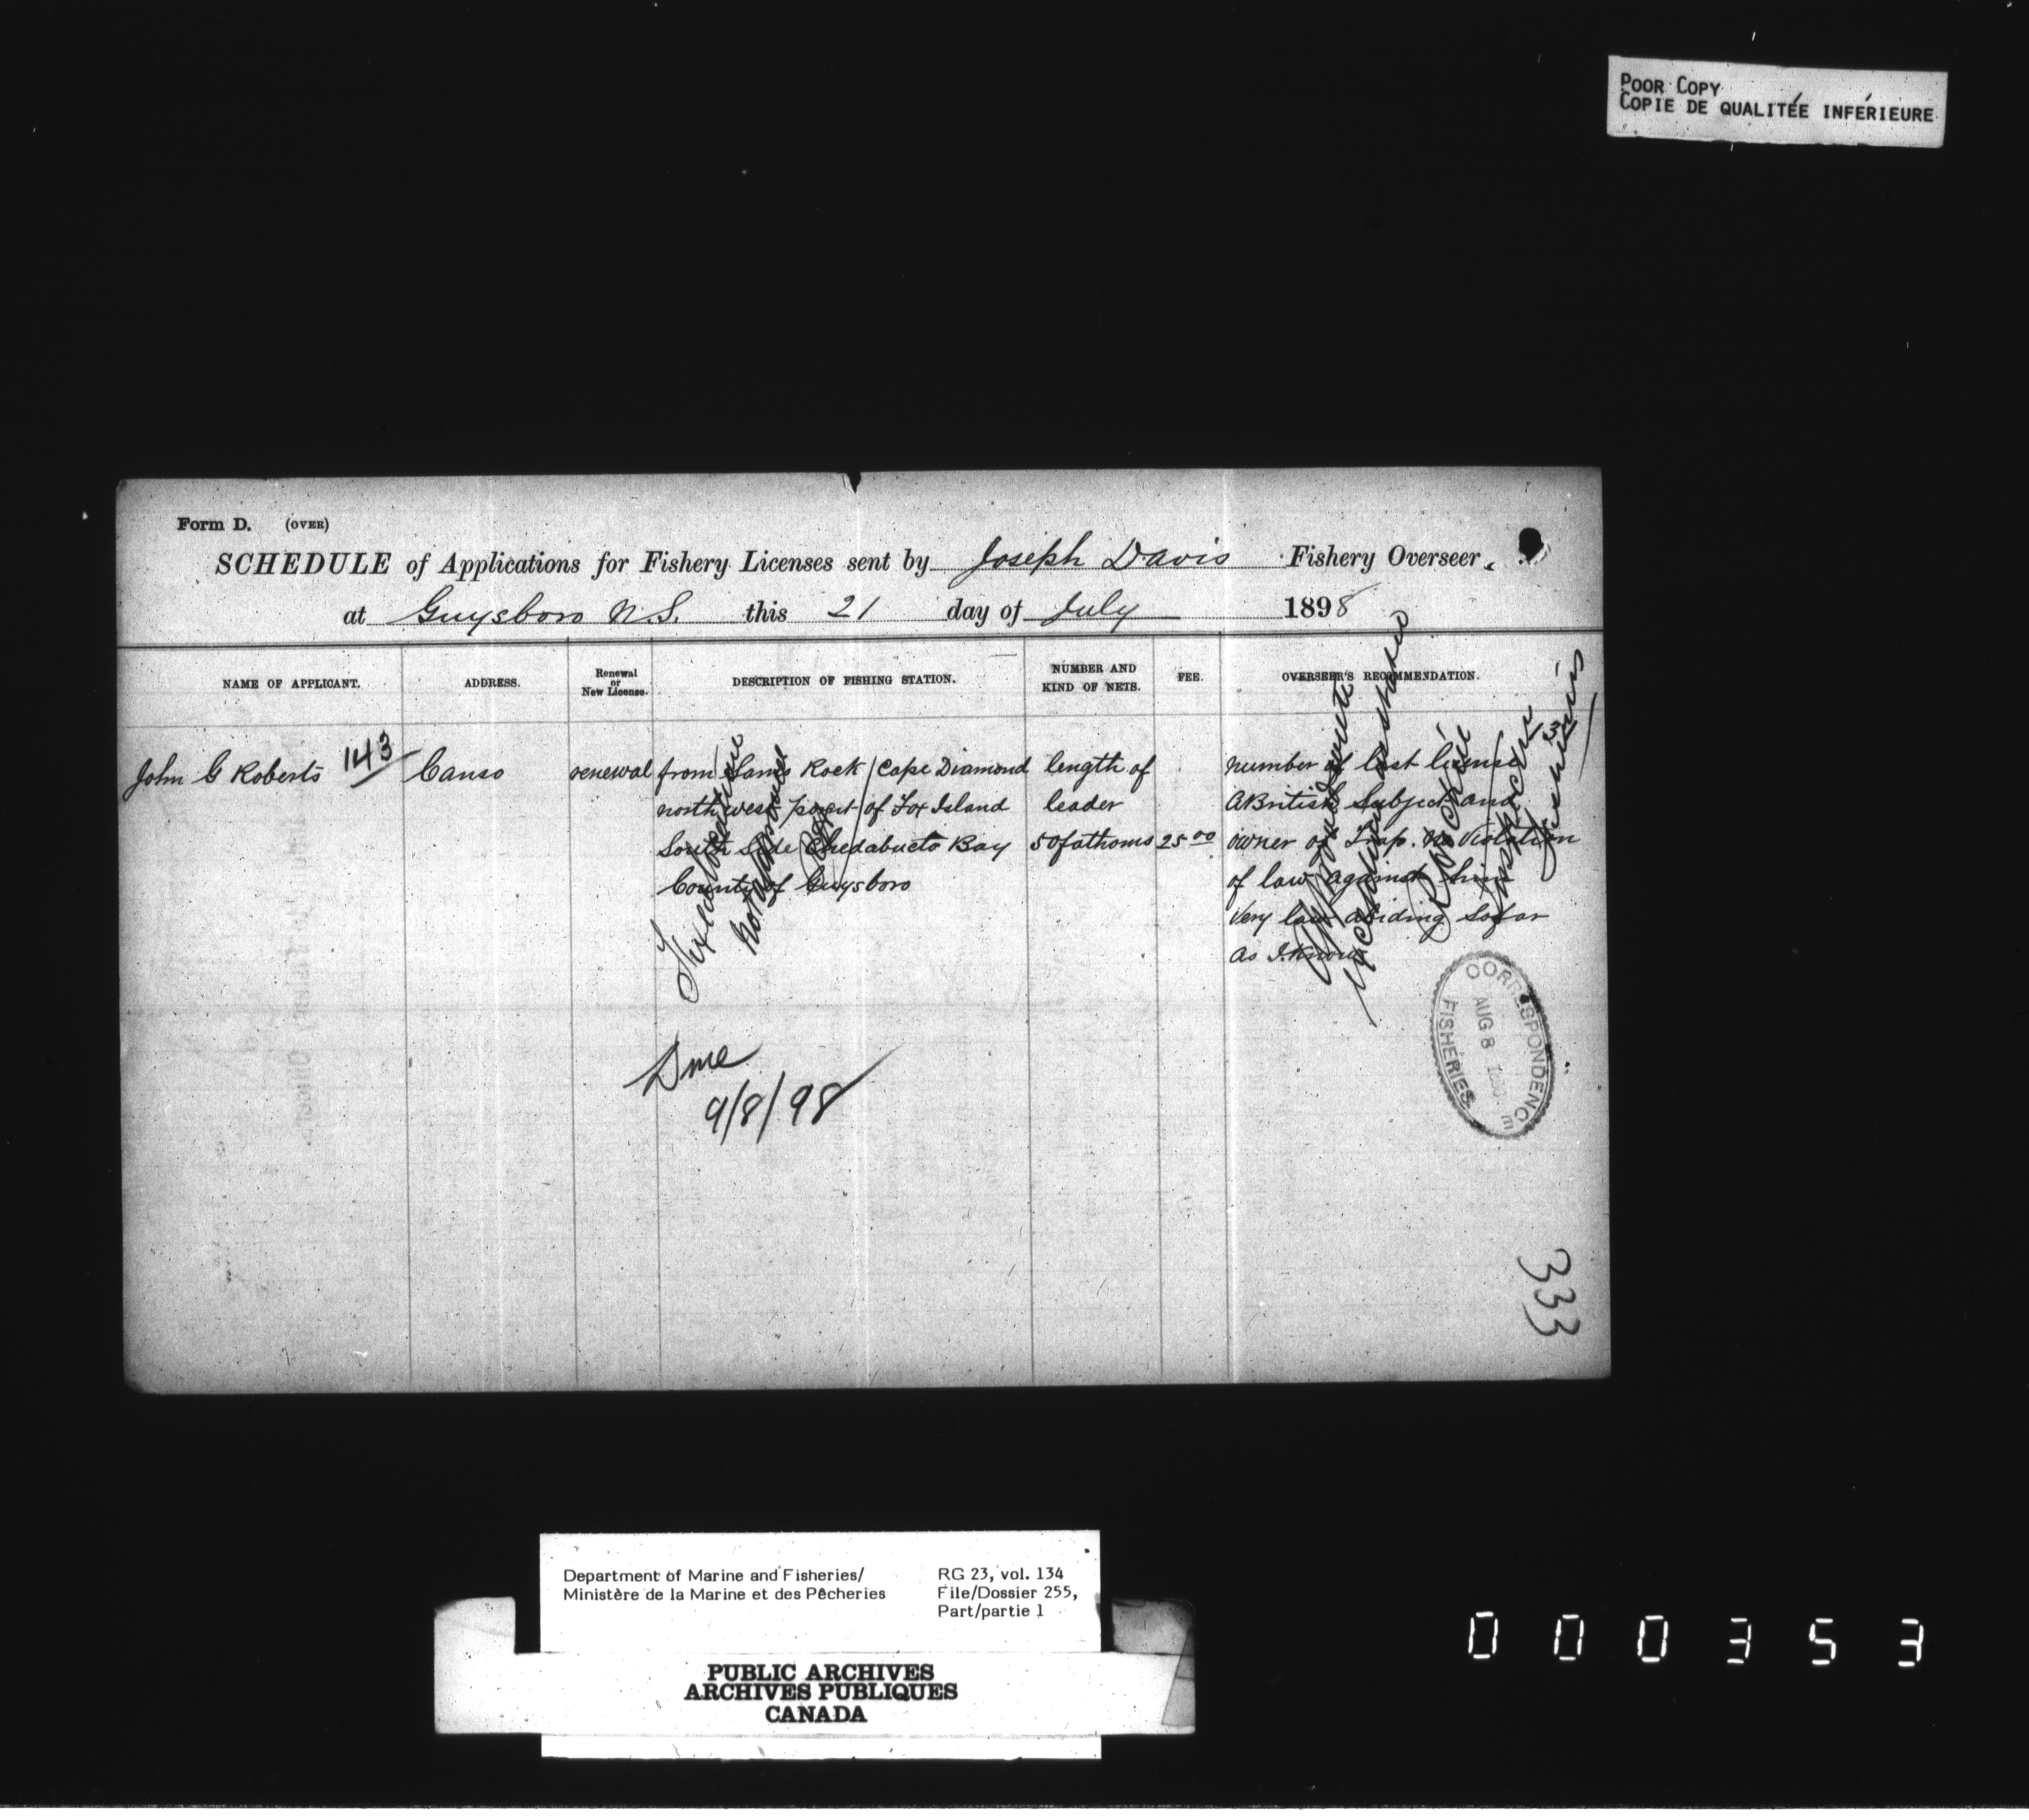 POOR COPY
COPIE DE QUALITÉE INFÉRIEURE
Form D. (OVER)
SCHEDULE of Applications for Fishery Licenses sent by Joseph Davis Fishery Overseer,
at Guysboro N.S. this 21 day of July 1898
NAME OF APPLICANT. ADDRESS. Renewal or New License. DESCRIPTION OF FISHING STATION. NUMBER AND KIND OF NETS. FEE. OVERSEER'S RECOMMENDATION.
John G Roberts 143 Canso renewal from Sams Rock Cape Diamond length of number of last license
north west point of Fox Island leader A British Subject and
South Side Chedabucto Bay 50 fathoms 25 00 owner of Trap. no Violation
County of Guysboro of law against him
Very law abiding So far
as I know
9/8/98
CORRESPONDENCE
AUG 8
FISHERIES
333
Department of Marine and Fisheries/ RG 23, vol. 134
Ministère de la Marine et des Pêcheries File/Dossier 255,
Part/partie 1
PUBLIC ARCHIVES
ARCHIVES PUBLIQUES
CANADA
000353